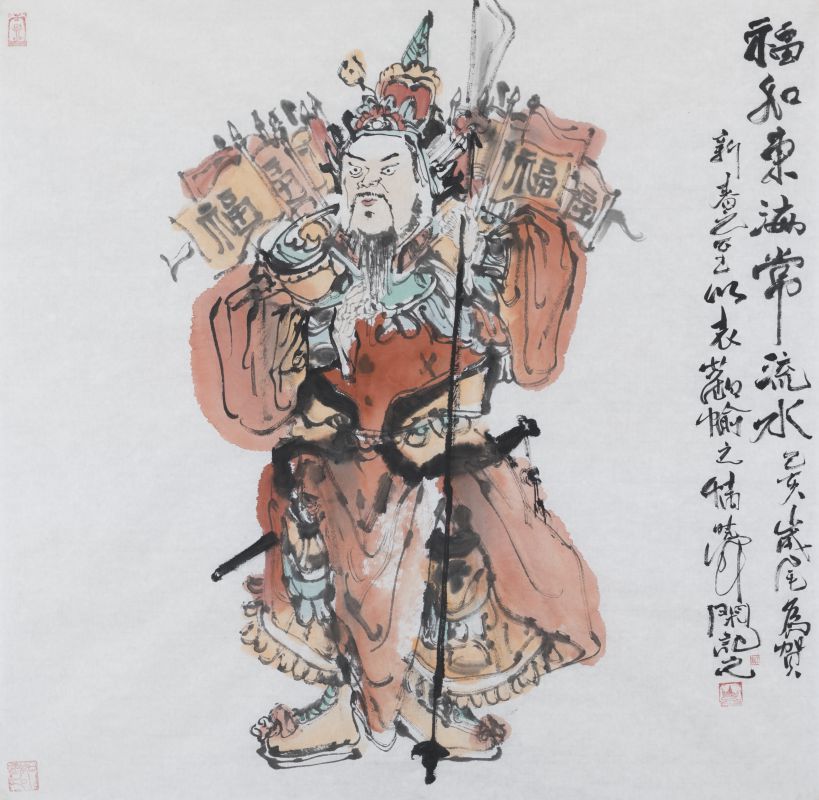 福如東海常流水 己亥歲尾為賀
新春之至以表歡愉之情
記之
福
福
福
福